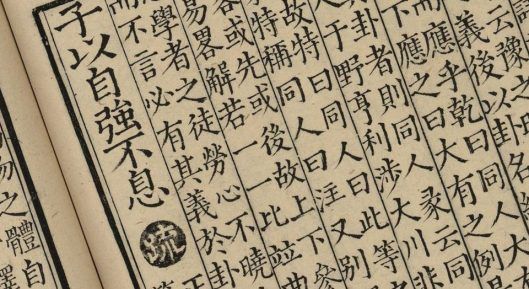 云豫
義後以卦名
而應乎乾曰同人大
下應之曰大有之例
卦者則同人彖云同
于野亨利涉大川非
故特曰同人曰此等
特稱同人曰注又別
或先或後故上下參
易畧解若一一比並曲
學者之徒勞心不曉
而不言必有其義於卦
子以自強不息 疏
易之體自